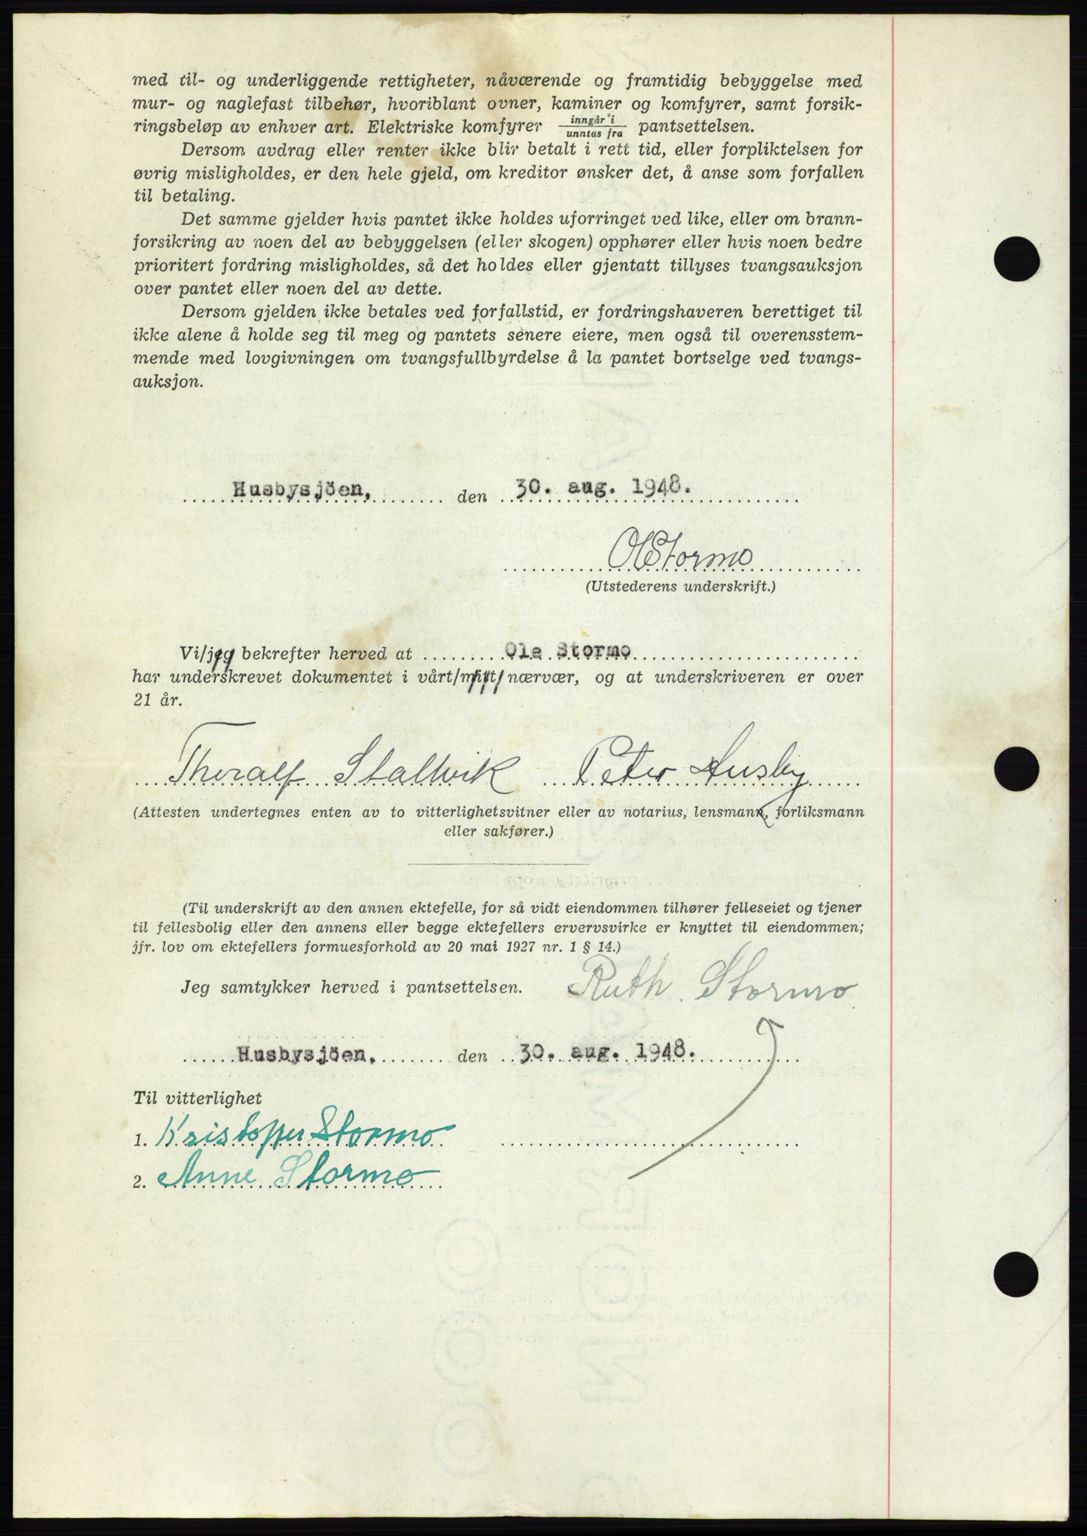 med til- og underliggende rettigheter, nåværende og framtidig bebyggelse med
mur- og naglefast tilbehør, hvoriblant ovner, kaminer og komfyrer, samt forsik-
ringsbeløp av enhver art. Elektriske komfyrer inngår i / unntas fra pantsettelsen.
Dersom avdrag eller renter ikke blir betalt i rett tid, eller forpliktelsen for
øvrig misligholdes, er den hele gjeld, om kreditor ønsker det, å anse som forfallen
til betaling.
Det samme gjelder hvis pantet ikke holdes uforringet ved like, eller om brann-
forsikring av noen del av bebyggelsen (eller skogen) opphører eller hvis noen bedre
prioritert fordring misligholdes, så det holdes eller gjentatt tillyses tvangsauksjon
over pantet eller noen del av dette.
Dersom gjelden ikke betales ved forfallstid, er fordringshaveren berettiget til
ikke alene å holde seg til meg og pantets senere eiere, men også til overensstem-
mende med lovgivningen om tvangsfullbyrdelse å la pantet bortselge ved tvangs-
auksjon.
Husbysjöen, den 30. aug. 1948.
Ol Stormo
(Utstederens underskrift.)
Vi/jeg bekrefter herved at Ole Stormo
har underskrevet dokumentet i vårt/mitt nærvær, og at underskriveren er over
21 år.
Thoralf Stallvik Peter Husby
(Attesten undertegnes enten av to vitterlighetsvitner eller av notarius, lensmann, forliksmann
eller sakfører.)
(Til underskrift av den annen ektefelle, for så vidt eiendommen tilhører felleseiet og tjener
til fellesbolig eller den annens eller begge ektefellers ervervsvirke er knyttet til eiendommen;
jfr. lov om ektefellers formuesforhold av 20 mai 1927 nr. 1 § 14.)
Jeg samtykker herved i pantsettelsen. Ruth Stormo
Husbysjöen, den 30. aug. 1948.
Til vitterlighet
1. Kristoffer Stormo
2. Anne Stormo